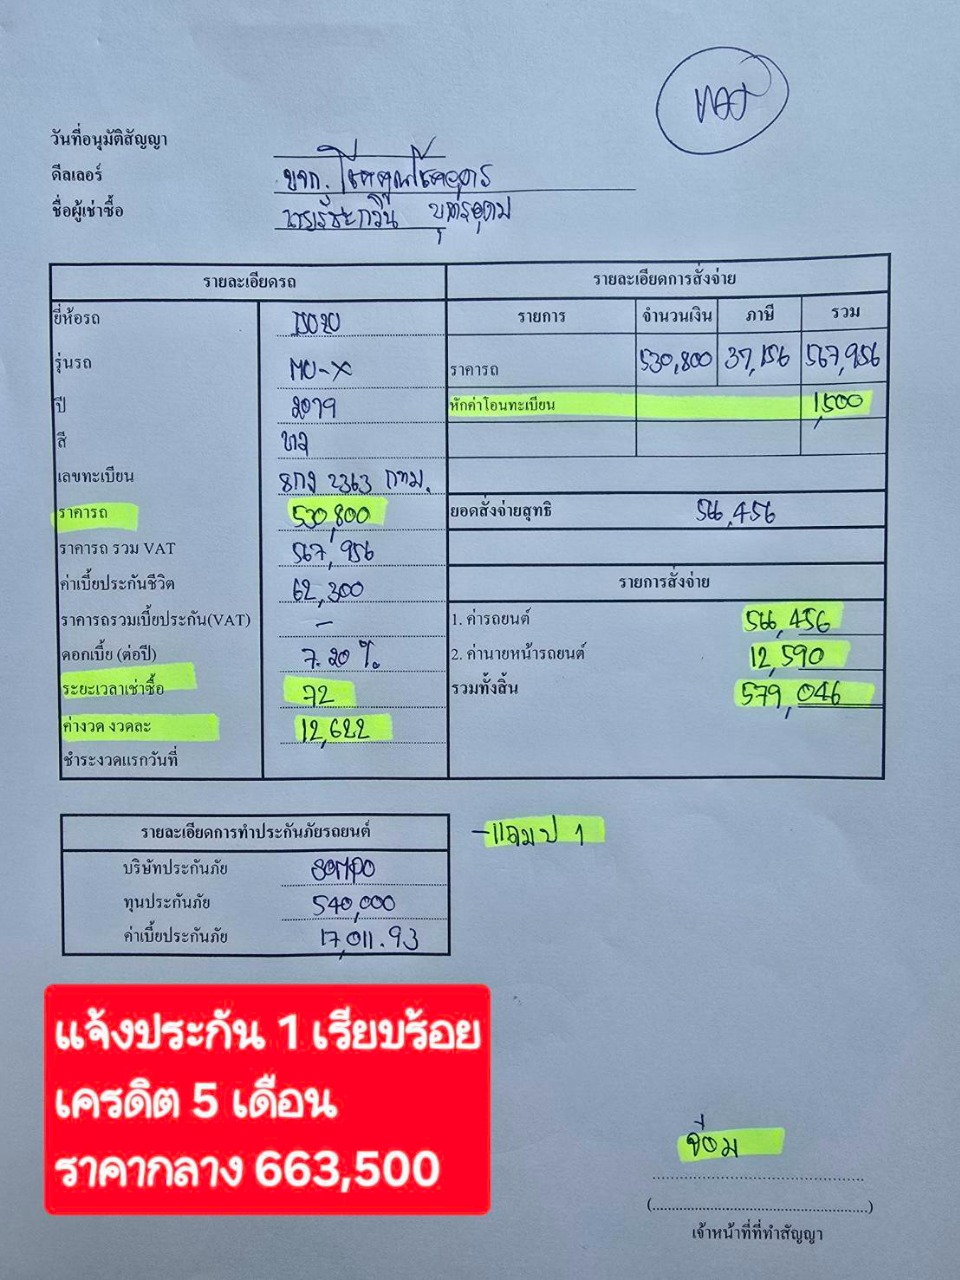 VAT
วันที่อนุมัติสัญญา
ดีลเลอร์ บจก.
ชื่อผู้เช่าซื้อ
รายละเอียดรถ
ยี่ห้อรถ ISUZU
รุ่นรถ MU-X
ปี 2019
สี เทา
เลขทะเบียน 8กง 2363 กทม.
ราคารถ 530,800
ราคารถ รวม VAT 567,956
ค่าเบี้ยประกันชีวิต 62,300
ราคารถรวมเบี้ยประกัน(VAT) -
ดอกเบี้ย (ต่อปี) 7.20 %
ระยะเวลาเช่าซื้อ 72
ค่างวด งวดละ 12,622
ชำระงวดแรกวันที่
รายละเอียดการสั่งจ่าย
รายการ จำนวนเงิน ภาษี รวม
ราคารถ 530,800 37,156 567,956
หักค่าโอนทะเบียน 1,500
ยอดสั่งจ่ายสุทธิ 566,456
รายการสั่งจ่าย
1. ค่ารถยนต์ 566,456
2. ค่านายหน้ารถยนต์ 12,590
รวมทั้งสิ้น 579,046
รายละเอียดการทำประกันภัยรถยนต์
บริษัทประกันภัย SOMPO
ทุนประกันภัย 540,000
ค่าเบี้ยประกันภัย 17,011.93
-แถมป 1
แจ้งประกัน 1 เรียบร้อย
เครดิต 5 เดือน
ราคากลาง 663,500
(........................................................)
เจ้าหน้าที่ที่ทำสัญญา